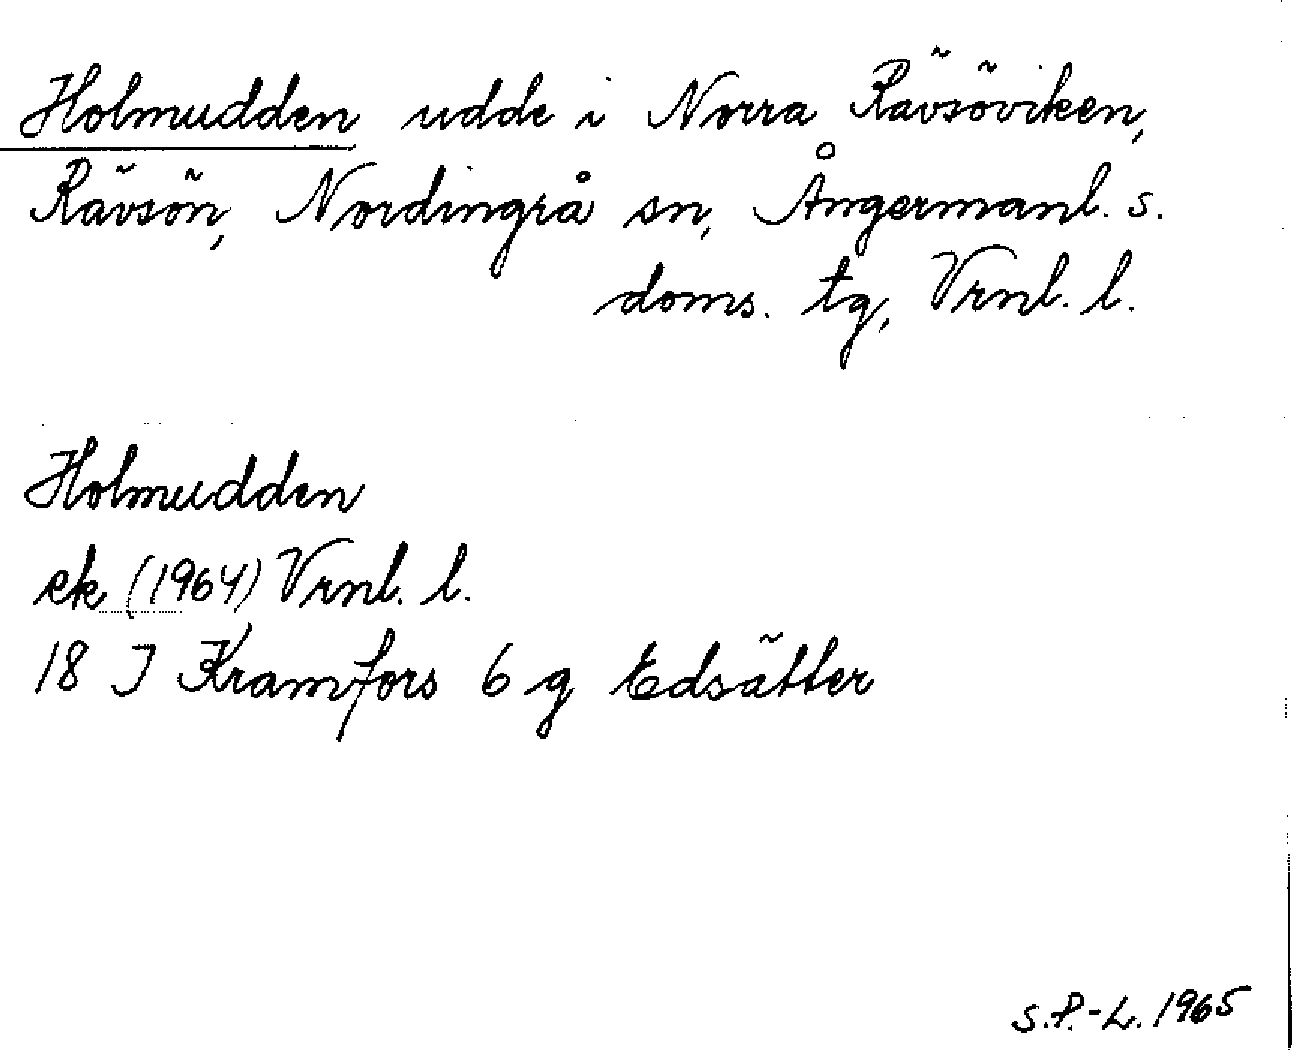 Holmudden udde i Norra Rävsöviken,
Rävsön, Nordingrå sn, Ångermanl. s.
doms. tg, Vrnl. l.
Holmudden
ek (1964) Vrnl. l.
18 J Kramfors 6 g Edsätter
S.P.-L. 1965